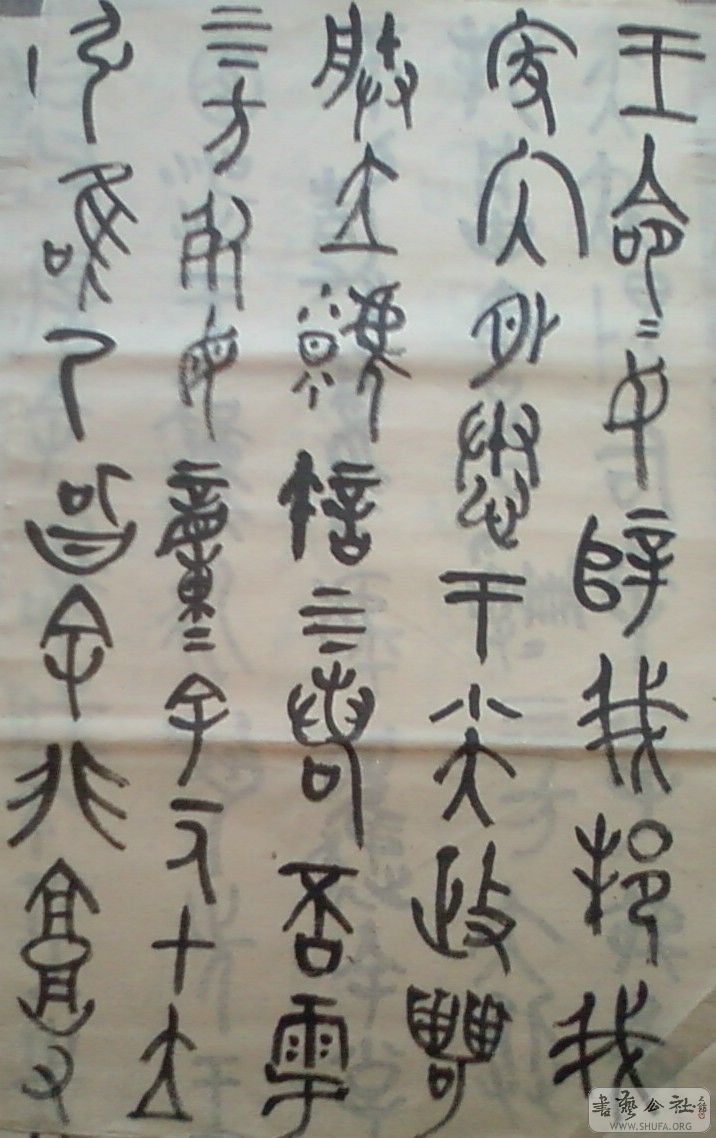 王命=女辥我邦我
家内外憃于小大政甹
朕立虩許上下若否雩
四方死毋童=余一人才立
引唯乃智余非又
書藝公社
WWW.SHUFA.ORG